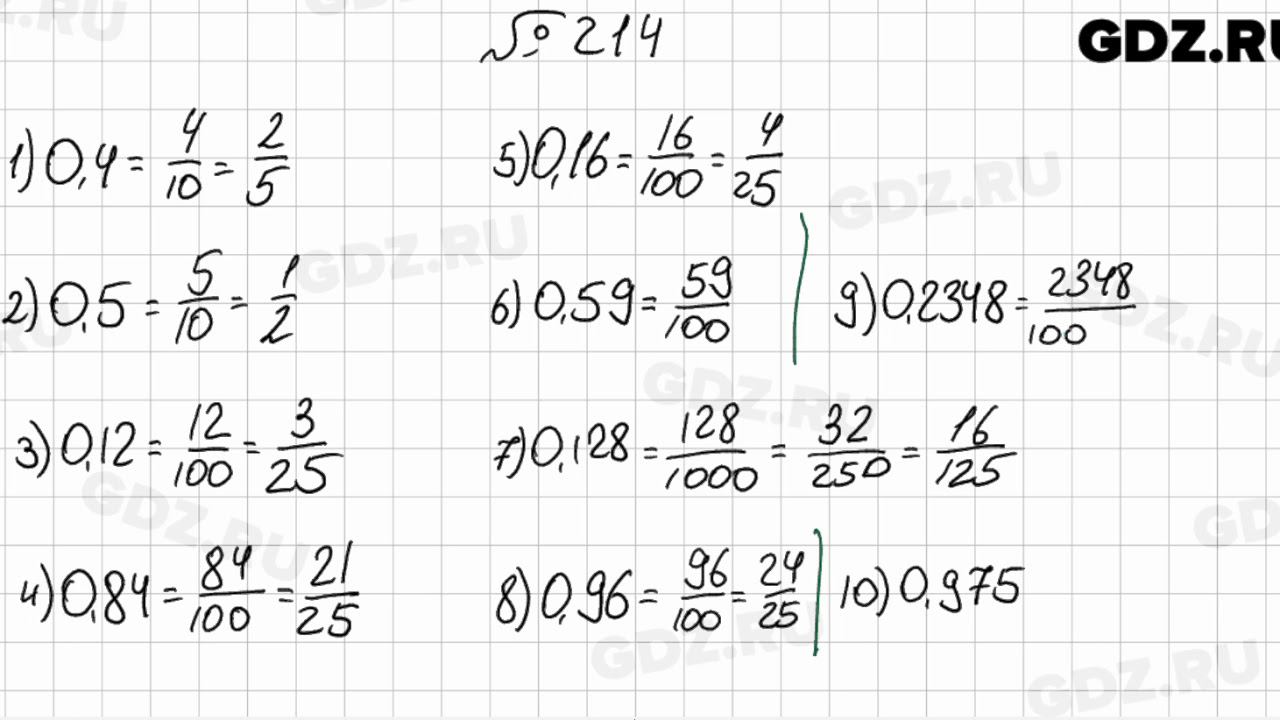 № 214
GDZ.RU
1) 0,4 = 4/10 = 2/5
5) 0,16 = 16/100 = 4/25
2) 0,5 = 5/10 = 1/2
6) 0,59 = 59/100
9) 0,2348 = 2348/100
3) 0,12 = 12/100 = 3/25
7) 0,128 = 128/1000 = 32/250 = 16/125
4) 0,84 = 84/100 = 21/25
8) 0,96 = 96/100 = 24/25
10) 0,975
GDZ.RU
GDZ.RU
GDZ.RU
GDZ.RU
GDZ.RU
GDZ.RU
GDZ.RU
GDZ.RU